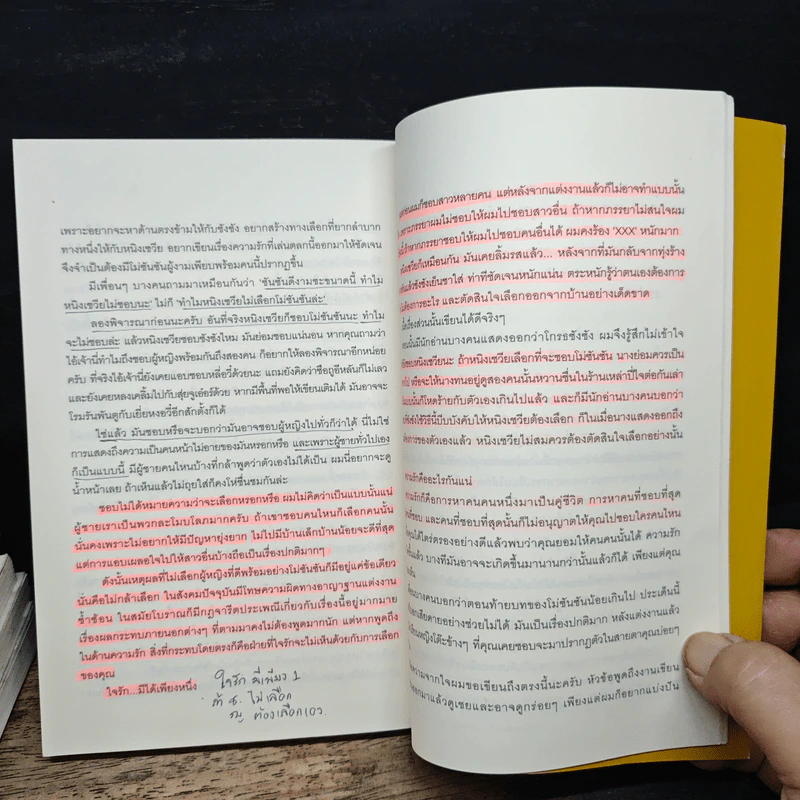 เพราะอยากจะหาด้านตรงข้ามให้กับชังชัง อยากสร้างทางเลือกที่ยากลำบาก
ทางหนึ่งให้กับหนิงเชวีย อยากเขียนเรื่องความรักที่เล่นตลกนี้ออกมาให้ชัดเจน
จึงจำเป็นต้องมีโม่ซันซันผู้งามเพียบพร้อมคนนี้ปรากฏขึ้น
มีเพื่อนๆ บางคนถามมาเหมือนกันว่า 'ซันซันดีงามซะขนาดนี้ ทำไม
หนิงเชวียไม่ชอบนะ' ไม่ก็ 'ทำไมหนิงเชวียไม่เลือกโม่ซันซันล่ะ'
ลองพิจารณาก่อนนะครับ อันที่จริงหนิงเชวียก็ชอบโม่ซันซัน ทำไม
จะไม่ชอบล่ะ แล้วหนิงเชวียชอบชังชังไหม มันย่อมชอบแน่นอน หากคุณถามว่า
ไอ้เจ้านี่ทำไมถึงชอบผู้หญิงพร้อมกันถึงสองคน ก็อยากให้ลองพิจารณาอีกหน่อย
ครับ ที่จริงไอ้เจ้านี่ยังเคยแอบชอบหลี่อวี๋ด้วยนะ แถมยังคิดว่าซือถูอีหลันก็ไม่เลว
และยังเคยหลงเคลิ้มไปกับสุ่ยจูเอ๋อร์ด้วย หากมีพื้นที่พอให้เขียนเติมได้ มันอาจจะ
โรมรันพันตูกับเยี่ยหงอวี๋อีกสักตั้งก็ได้
ใช่แล้ว มันชอบหรือจะบอกว่ามันอาจชอบผู้หญิงไปทั่วก็ว่าได้ นี่ไม่ใช่
การแสดงถึงความเป็นคนหน้าไม่อายของมันหรอกหรือ และเพราะผู้ชายทั่วไปเอง
ก็เป็นแบบนี้ มีผู้ชายคนไหนบ้างที่กล้าพูดว่าตัวเองไม่ได้เป็น ผมนี่อยากจะดู
น้ำหน้าเลย ถ้าเห็นแล้วไม่ถุยใส่ก็คงโห่ชื่นชมกันล่ะ
ชอบไม่ได้หมายความว่าจะเลือกหรอกหรือ ผมไม่คิดว่าเป็นแบบนั้นแน่
ผู้ชายเราเป็นพวกละโมบโลภมากครับ ถ้าเขาชอบคนไหนก็จะเลือกคนนั้น
นั่นคงเพราะไม่อยากให้มีปัญหายุ่งยาก ไม่ไปมีบ้านเล็กบ้านน้อยจะดีที่สุด
แต่การแอบเผลอใจไปให้สาวอื่นบ้างถือเป็นเรื่องปกติมากๆ
ดังนั้นเหตุผลที่ไม่เลือกผู้หญิงที่ดีพร้อมอย่างโม่ซันซันก็มีอยู่แค่ข้อเดียว
นั่นคือไม่กล้าเลือก ในสังคมปัจจุบันมีโทษความผิดทางอาญาฐานแต่งงาน
ซ้ำซ้อน ในสมัยโบราณก็มีกฎจารีตประเพณีเกี่ยวกับเรื่องนี้อยู่มากมาย
เรื่องผลกระทบภายนอกต่างๆ ที่ตามมาคงไม่ต้องพูดมากนัก แต่หากพูดถึง
ในด้านความรัก สิ่งที่กระทบโดยตรงก็คือฝ่ายที่ใจรักจะไม่เห็นด้วยกับการเลือก
ของคุณ
ใจรัก...มีได้เพียงหนึ่ง
ใจรัก มีเพียง 1
ไม่เลือก
ต้องเลือกเอง
ก่อนผมก็ชอบสาวหลายคน แต่หลังจากแต่งงานแล้วก็ไม่อาจทำแบบนั้น
เพราะภรรยาผมไม่ชอบให้ผมไปชอบสาวอื่น ถ้าหากภรรยาไม่สนใจผม
ถ้าหากภรรยาชอบให้ผมไปชอบคนอื่นได้ ผมคงร้อง 'XXX' หนักมาก
หนิงเชวียก็เหมือนกัน มันเคยลิ้มรสแล้ว... หลังจากที่มันกลับจากทุ่งร้าง
แล้วชังชังเย็นชาใส่ ท่าทีชัดเจนหนักแน่น ตระหนักรู้ว่าตนเองต้องการ
ไม่ต้องการอะไร และตัดสินใจเลือกออกจากบ้านอย่างเด็ดขาด
เรื่องส่วนนั้นเขียนได้ดีจริงๆ
ตอนนั้นมีนักอ่านบางคนแสดงออกว่าโกรธชังชัง ผมจึงรู้สึกไม่เข้าใจ
ชอบหนิงเชวียนะ ถ้าหนิงเชวียเลือกที่จะชอบโม่ซันซัน นางย่อมควรเป็น
ไป หรือจะให้นางทนอยู่ดูสองคนนั้นหวานชื่นในร้านเหล่าปี่ไจต่อกันเล่า
แบบนั้นก็โหดร้ายกับตัวเองเกินไปแล้ว และก็มีนักอ่านบางคนบอกว่า
ชังชังใช้วิธีนี้บีบบังคับให้หนิงเชวียต้องเลือก ก็ในเมื่อนางแสดงออกถึง
ต้องการของตัวเองแล้ว หนิงเชวียไม่สมควรต้องตัดสินใจเลือกอย่างนั้น
ความรักคืออะไรกันแน่
ความรักก็คือการหาคนคนหนึ่งมาเป็นคู่ชีวิต การหาคนที่ชอบที่สุด
ชอบ และคนที่ชอบที่สุดนั้นก็ไม่อนุญาตให้คุณไปชอบใครคนไหน
ได้ไตร่ตรองอย่างดีแล้วพบว่าคุณยอมให้คนคนนั้นได้ ความรัก
ขึ้นแล้ว บางทีมันอาจจะเกิดขึ้นมานานกว่านั้นแล้วก็ได้ เพียงแต่คุณ
เพื่อนบางคนบอกว่าตอนท้ายบทของโม่ซันซันน้อยเกินไป ประเด็นนี้
เสียดายอย่างช่วยไม่ได้ มันเป็นเรื่องปกติมาก หลังแต่งงานแล้ว
หญิงโต๊ะข้างๆ ที่คุณเคยชอบจะมาปรากฏตัวในสายตาคุณบ่อยๆ
ความจากใจผมขอเขียนถึงตรงนี้นะครับ หัวข้อพูดถึงงานเขียน
ออกมาแล้วดูเชยและอาจดูกร่อยๆ เพียงแต่ผมก็อยากแบ่งปัน